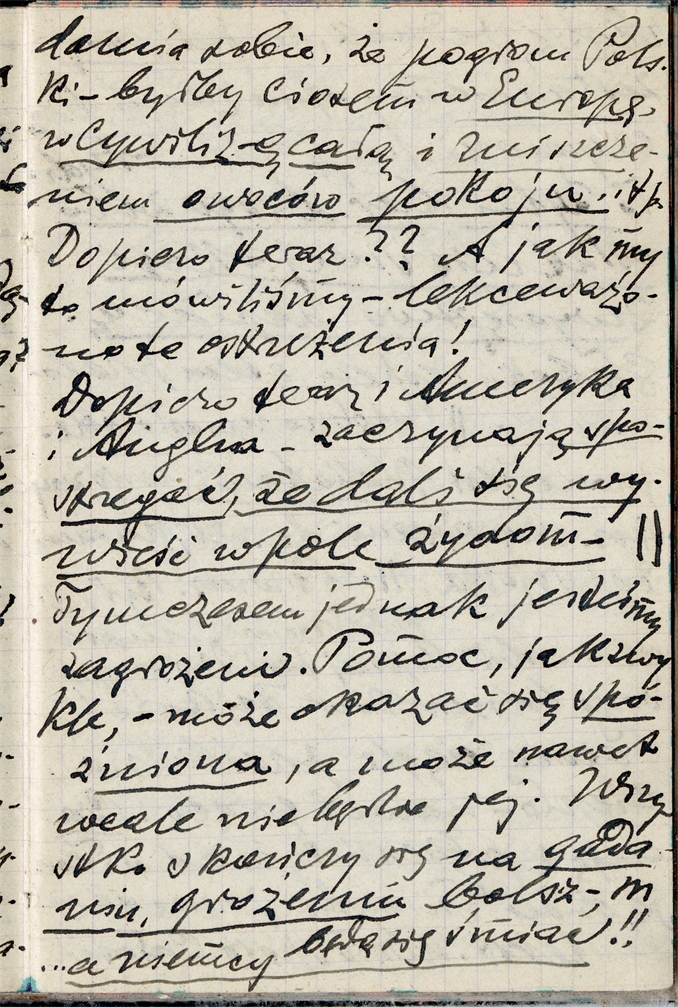 damia sobie, że pogrom Pols-
ki – byłby ciosem w Europę,
w Cywiliz-ę całą i zniszcze-
niem owoców pokoju.. itp.
Dopiero teraz?? A jak my
to mówiliśmy – lekceważo-
no te ostrzeżenia!
Dopiero teraz i Ameryka
i Anglia – zaczynają spo-
strzegać, że dali się wy-
wieść w pole żydom –
Tymczasem jednak jesteśmy
zagrożeni. Pomoc, jak zwy
kle, – może okazać się spó-
źniona, a może nawet
wcale nie będzie jej. Wszy
stko skończy się na gada
niu, grożeniu bolsz-,m
...a niemcy będą się śmiać!!